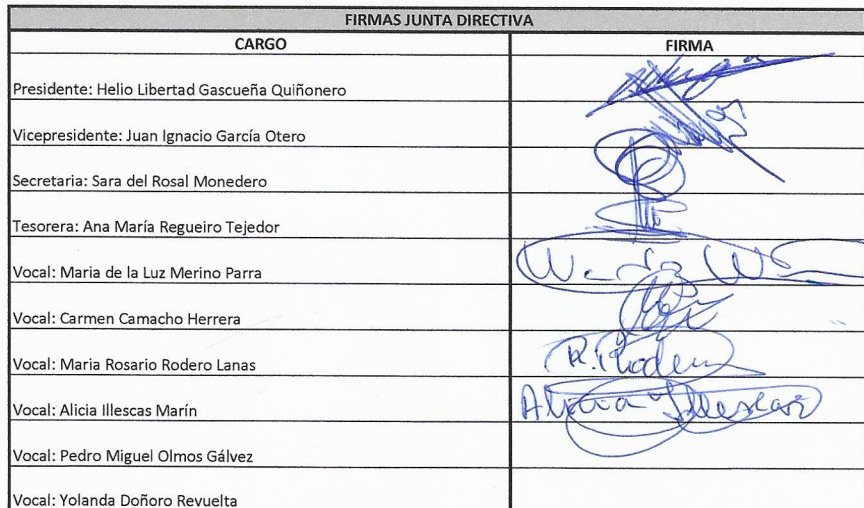 FIRMAS JUNTA DIRECTIVA
CARGO FIRMA
Presidente: Helio Libertad Gascueña Quiñonero
Vicepresidente: Juan Ignacio García Otero
Secretaria: Sara del Rosal Monedero
Tesorera: Ana María Regueiro Tejedor
Vocal: Maria de la Luz Merino Parra
Vocal: Carmen Camacho Herrera
Vocal: Maria Rosario Rodero Lanas R. Rodero
Vocal: Alicia Illescas Marín Alicia Illescas
Vocal: Pedro Miguel Olmos Gálvez
Vocal: Yolanda Doñoro Revuelta